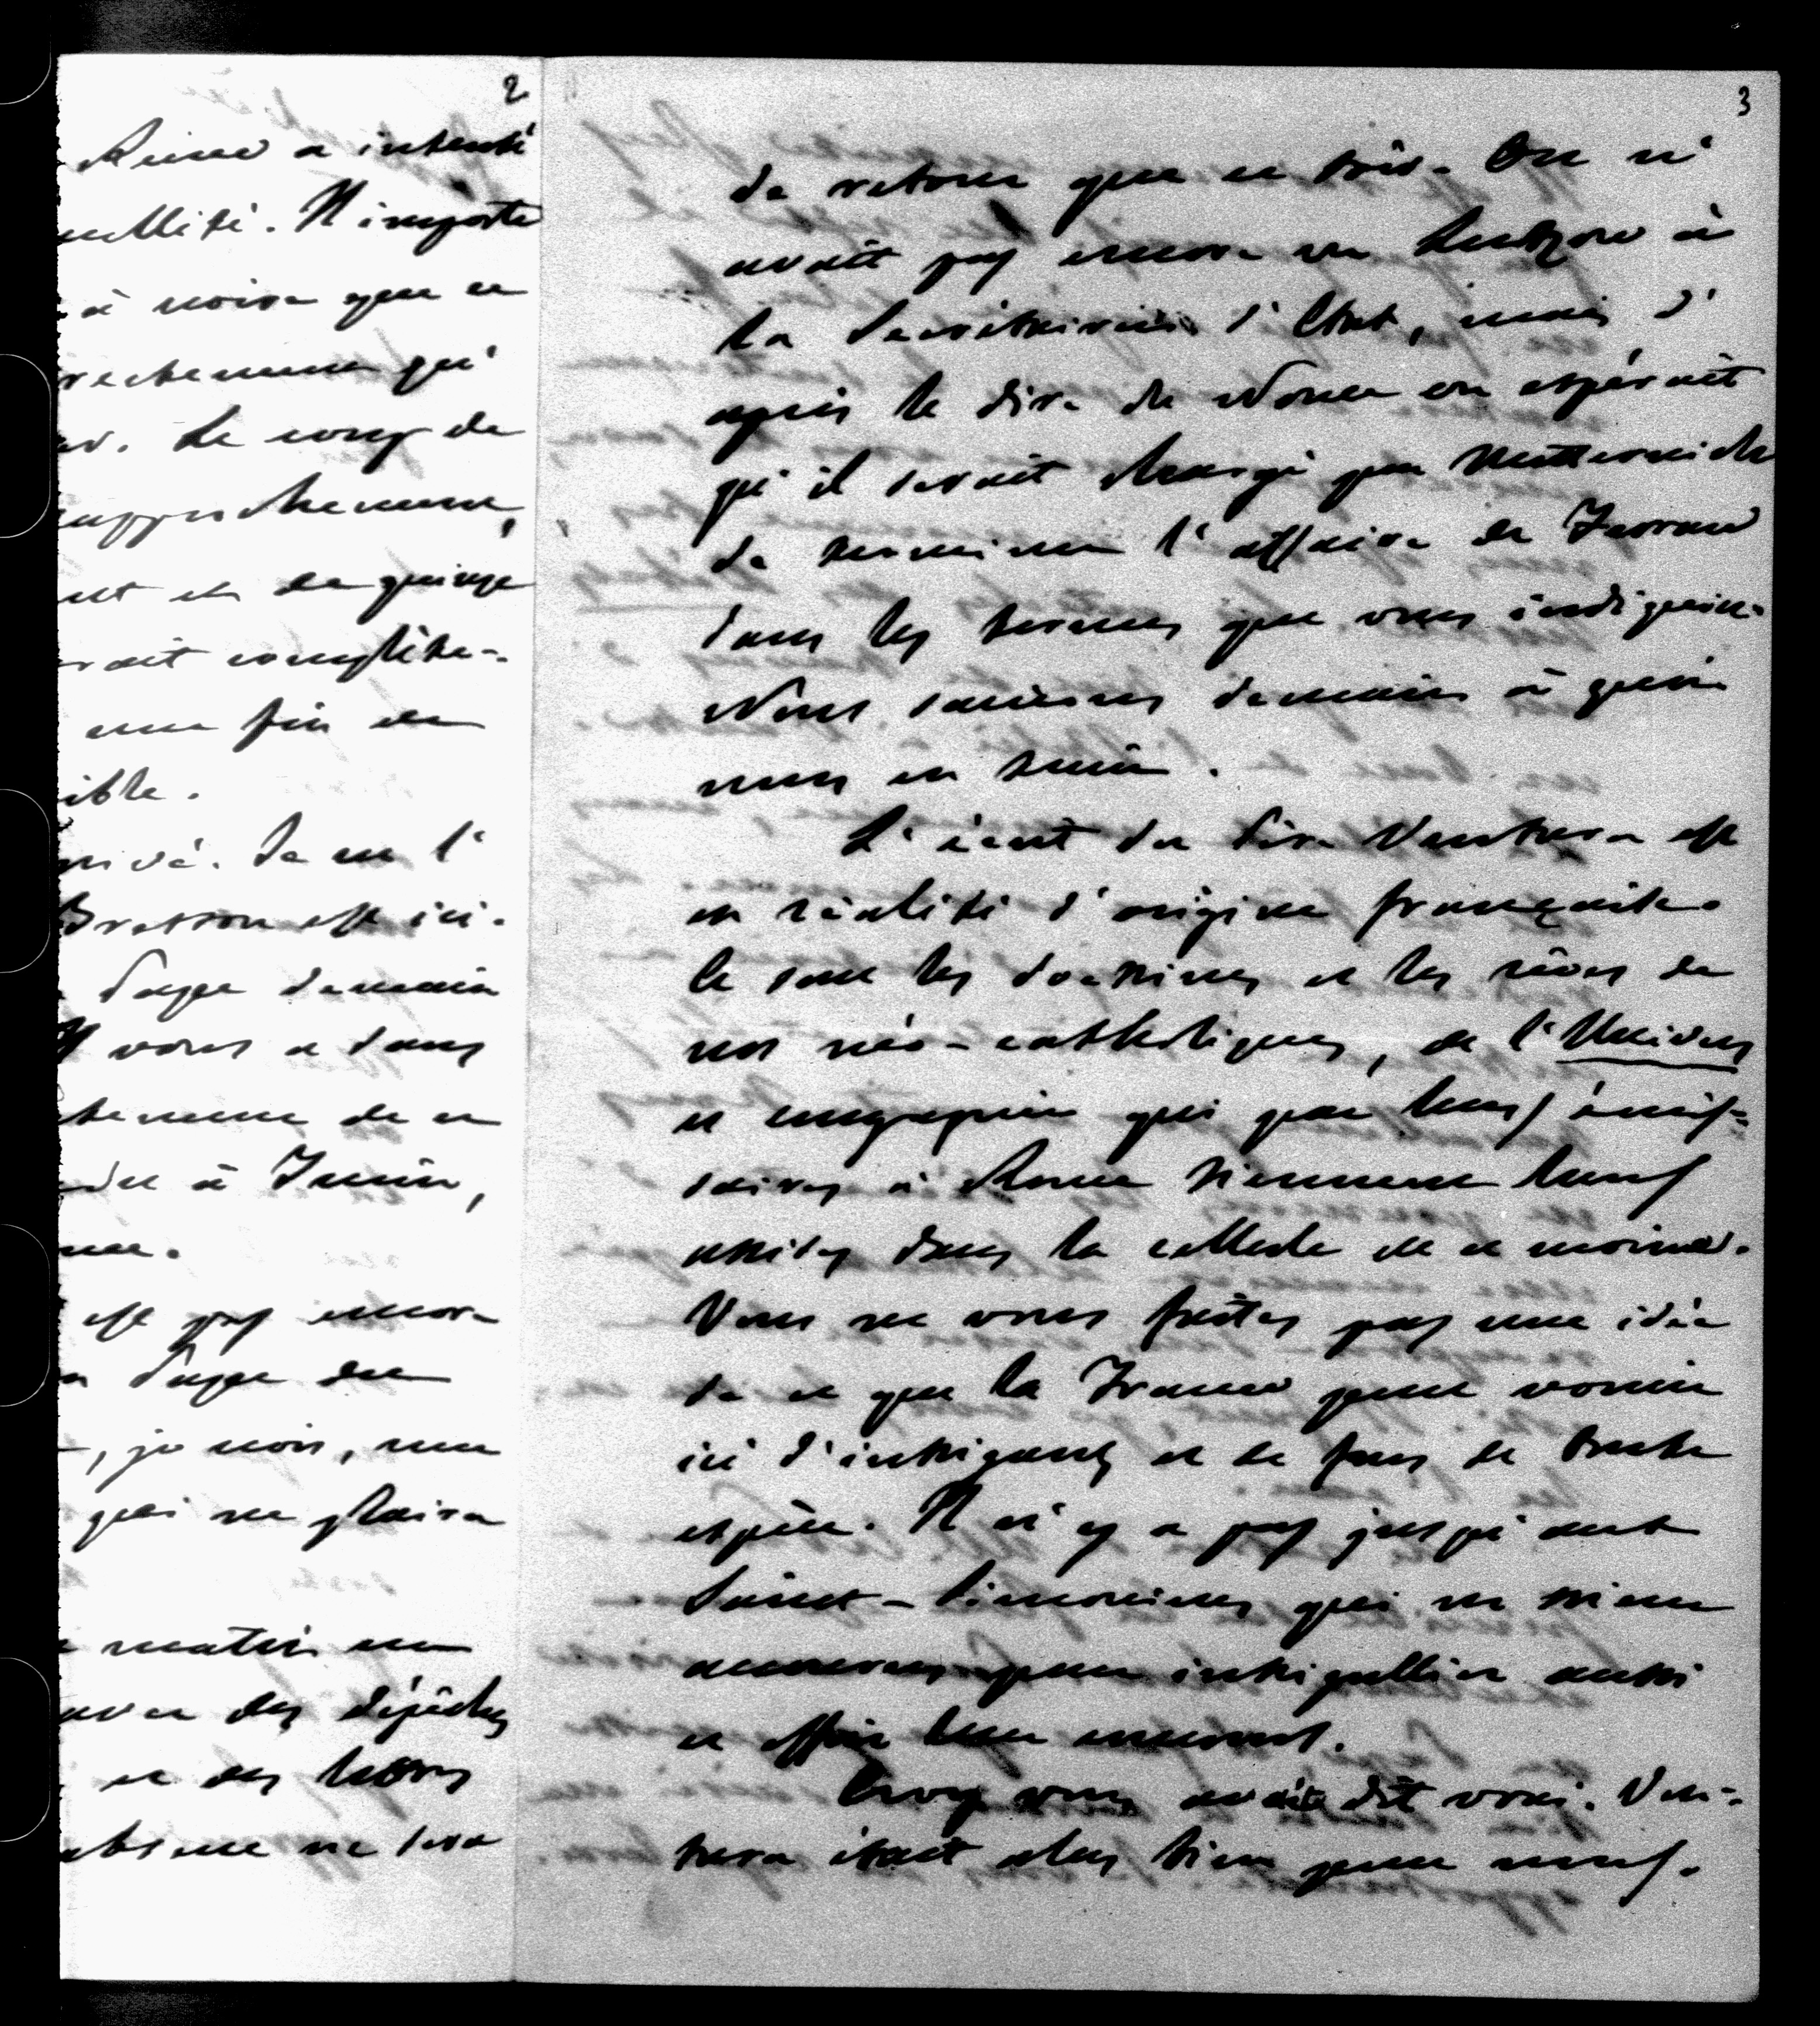 2
Reine a intenté
nullité. N'importe
à croire que ce
rochement qui
Le coup de
rapprochement,
et de quinze
rait complète-
une fin de
ible.
rivé. Je ne l'
Bresson est ici.
Pape demain
Il vous a dans
tement de ce
à Turin,
est pas encore
Pape du
, je crois, une
qui ne plaira
matin un
avec des dépêches
et des lettres
ne sera
3
de retour que ce soir. On n'
avait pas encore vu Lutzow à
la Secrétairerie d'Etat, mais d'
après le dire du Nonce on espérait
qu'il serait chargé par Metternich
de terminer l'affaire de Ferrare
dans les termes que vous indiquiez.
Nous saurons demain à quoi
nous en tenir.
L'écrit du Père Ventura est
en réalité d'origine française.
Ce sont les doctrines et les rêves de
nos néo-catholiques, de l'Univers
et compagnie qui par leurs émis-
saires à Rome tiennent leurs
assises dans la cellule de ce moine.
Vous ne vous faites pas une idée
de ce que la France peut vomir
ici d'intrigants et de fous de toute
espèce. Il n'y a pas jusqu'aux
Saint-Simoniens qui ne soient
accourus pour intrigailler aussi
et offrir leur encens.
Croy vous avait dit vrai. Ven-
tura était alors bien pour nous.